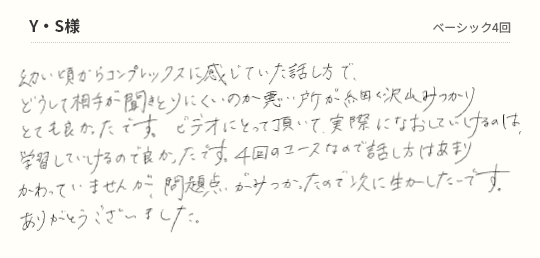 Y・S様
ベーシック4回
幼い頃からコンプレックスに感じていた話し方で、
どうして相手が聞きとりにくいのか悪い所が細く沢山みつかり
とても良かったです。ビデオにとって頂いて、実際になおしていけるのは、
学習していけるので良かったです。4回のコースなので話し方はあまり
かわっていませんが、問題点がみつかったので次に生かしたいです。
ありがとうございました。